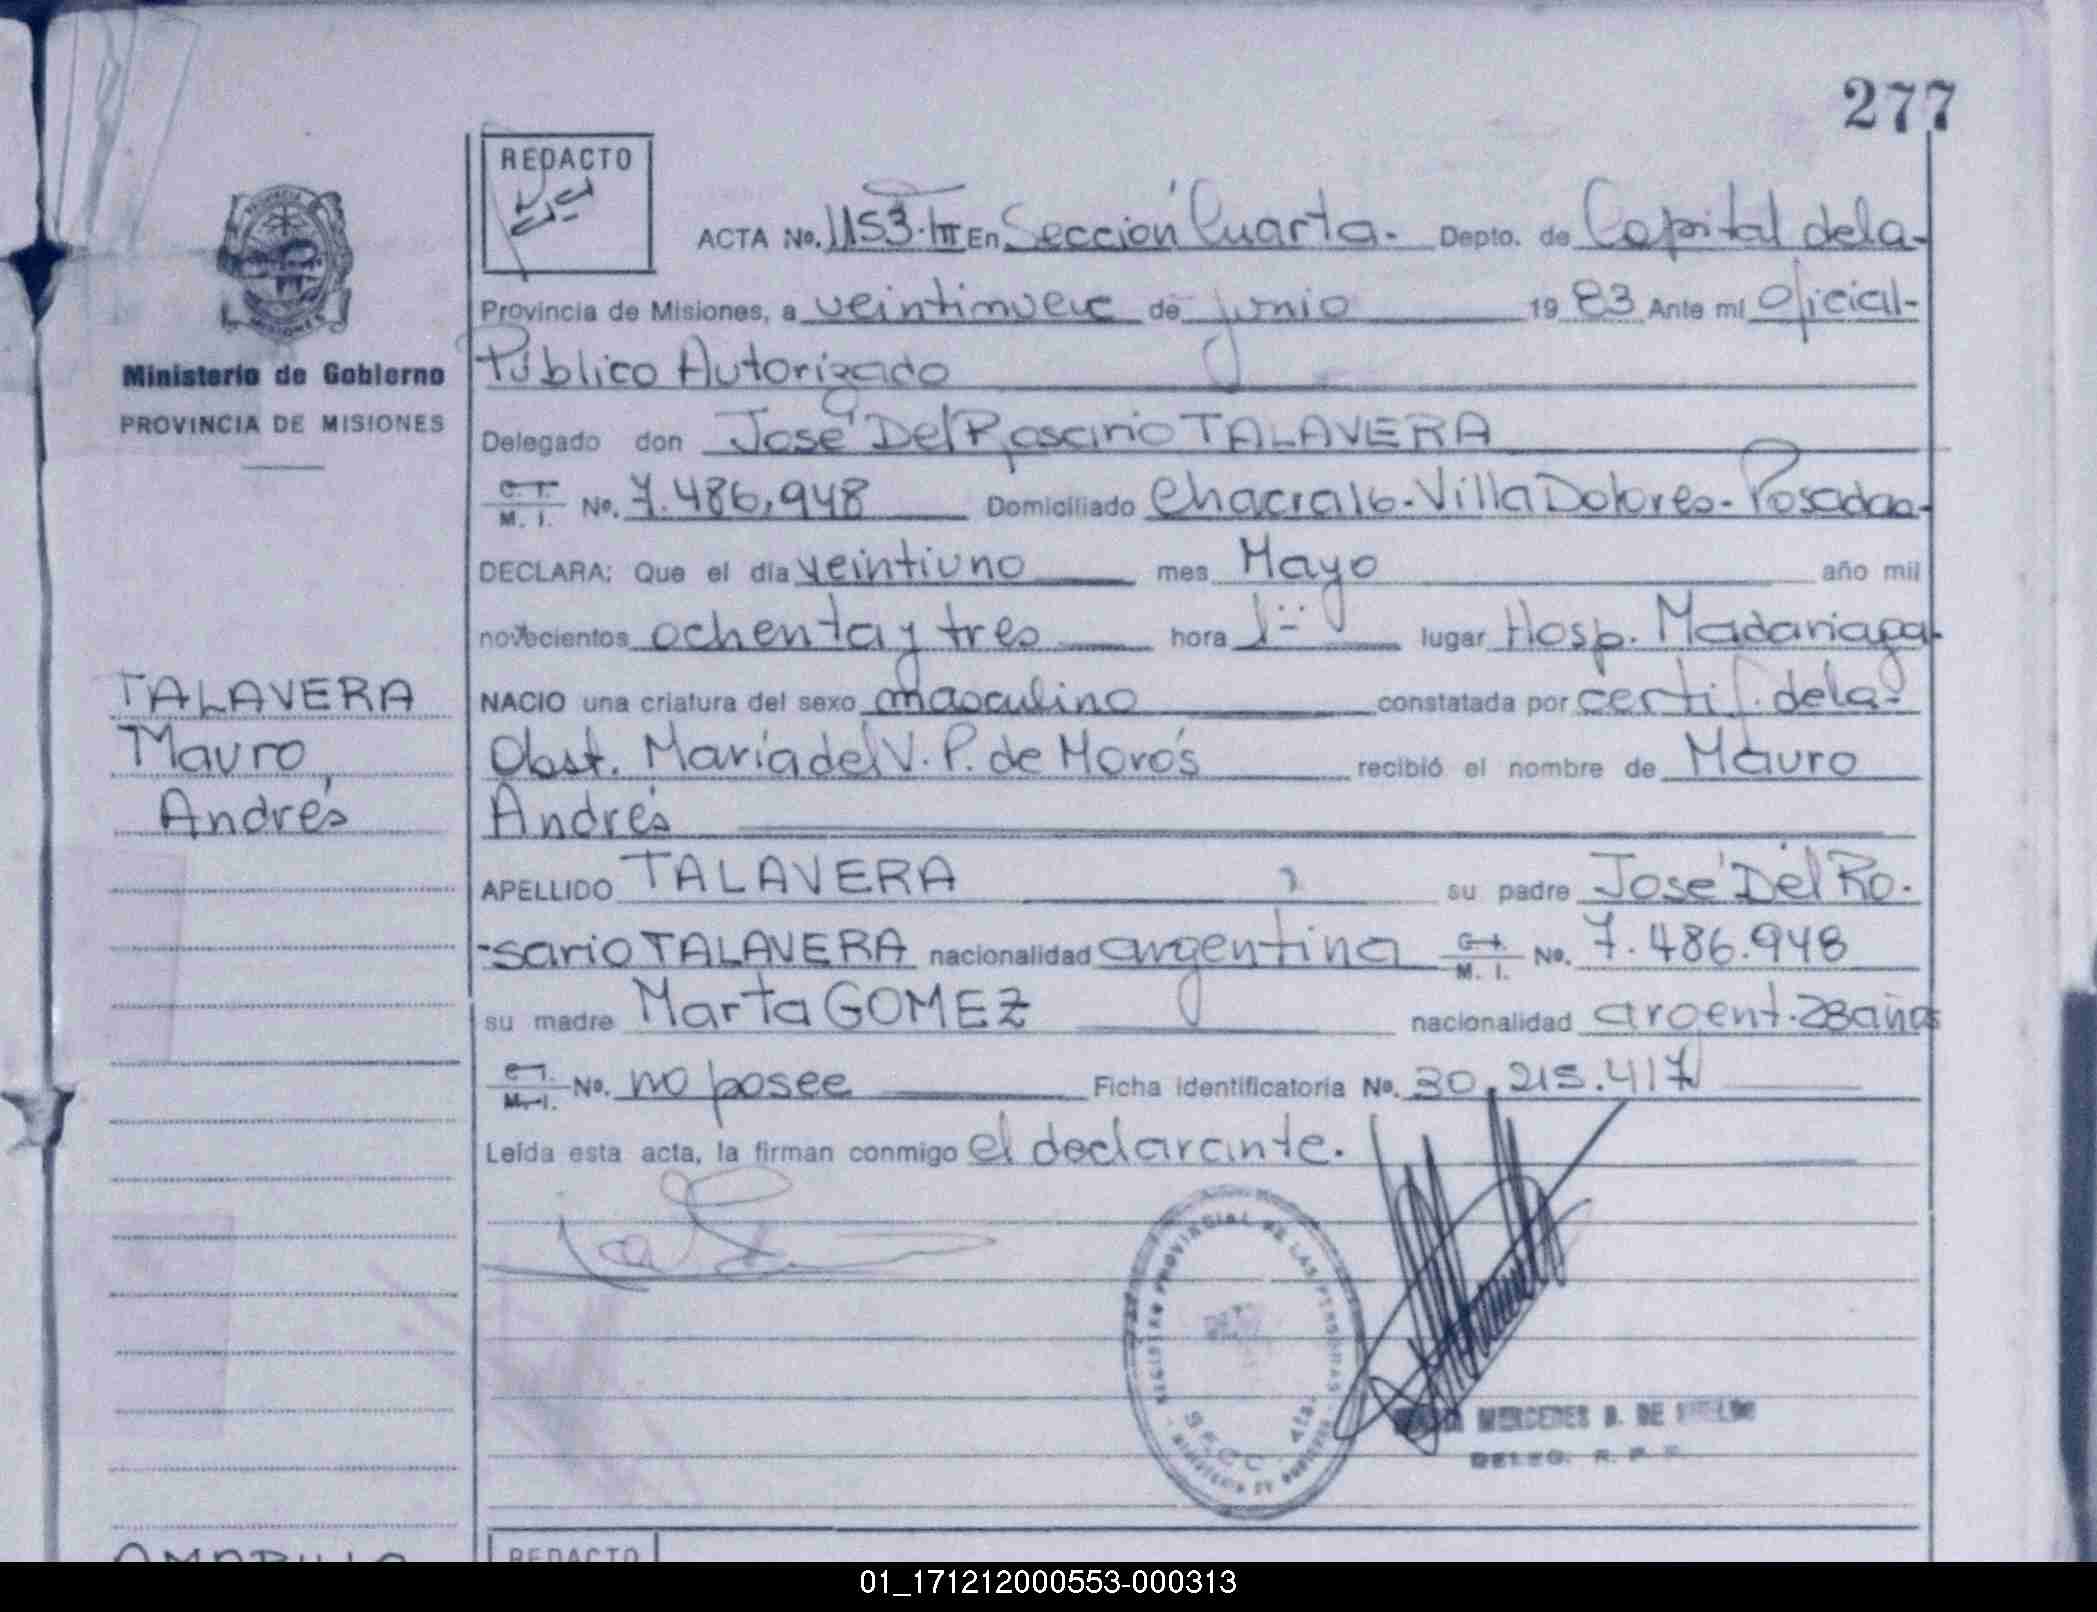 277
REDACTO
ACTA No. 1153·III En Sección Cuarta. Depto. de Capital de la-
Provincia de Misiones, a veintinueve de junio 1983 Ante mí Oficial-
Público Autorizado
Ministerio de Gobierno
PROVINCIA DE MISIONES
Delegado don José Del Rosario TALAVERA
C. I.
M. I. No. 7.486.948 Domiciliado Chacra 16-Villa Dolores-Posadas-
DECLARA: Que el día veintiuno mes Mayo año mil
novecientos ochenta y tres hora 1 lugar Hosp. Madariaga-
TALAVERA
Mauro,
Andrés
NACIO una criatura del sexo masculino constatada por certif. de la-
Obst. María del V. P. de Morós recibió el nombre de Mauro
Andrés
APELLIDO TALAVERA su padre José Del Ro-
-sario TALAVERA nacionalidad argentina C. I.
M. I. No. 7.486.948
su madre Marta GOMEZ nacionalidad argent. 28 años
C. I.
M. I. No. no posee Ficha identificatoria No. 30.215.417
Leída esta acta, la firman conmigo el declarante.
REGISTRO PROVINCIAL DE LAS PERSONAS
SECC. 4ta.
MINISTERIO DE GOBIERNO
MERCEDES B. DE
DELEG. R. P. P.
REDACTO
01_171212000553-000313